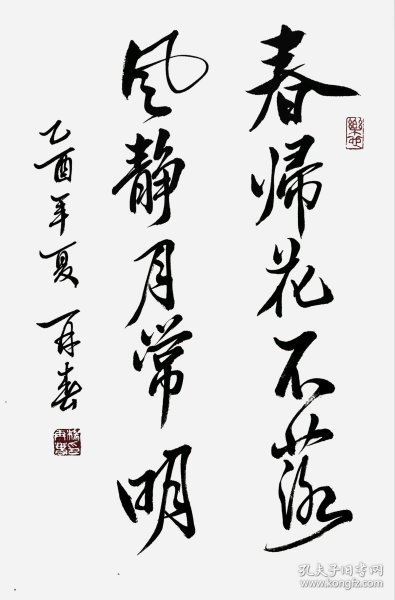 春歸花不落
風静月常明
乙酉年夏 再春
孔夫子旧书网
www.kongfz.com